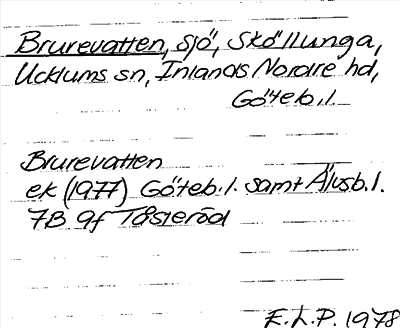 Brurevatten, sjö, Sköllunga,
Ucklums sn, Inlands Nordre hd,
Göteb.l.
Brurevatten
ek (1977) Göteb.l. samt Älvsb.l.
7B 9f Tåsteröd
E.L.P. 1978